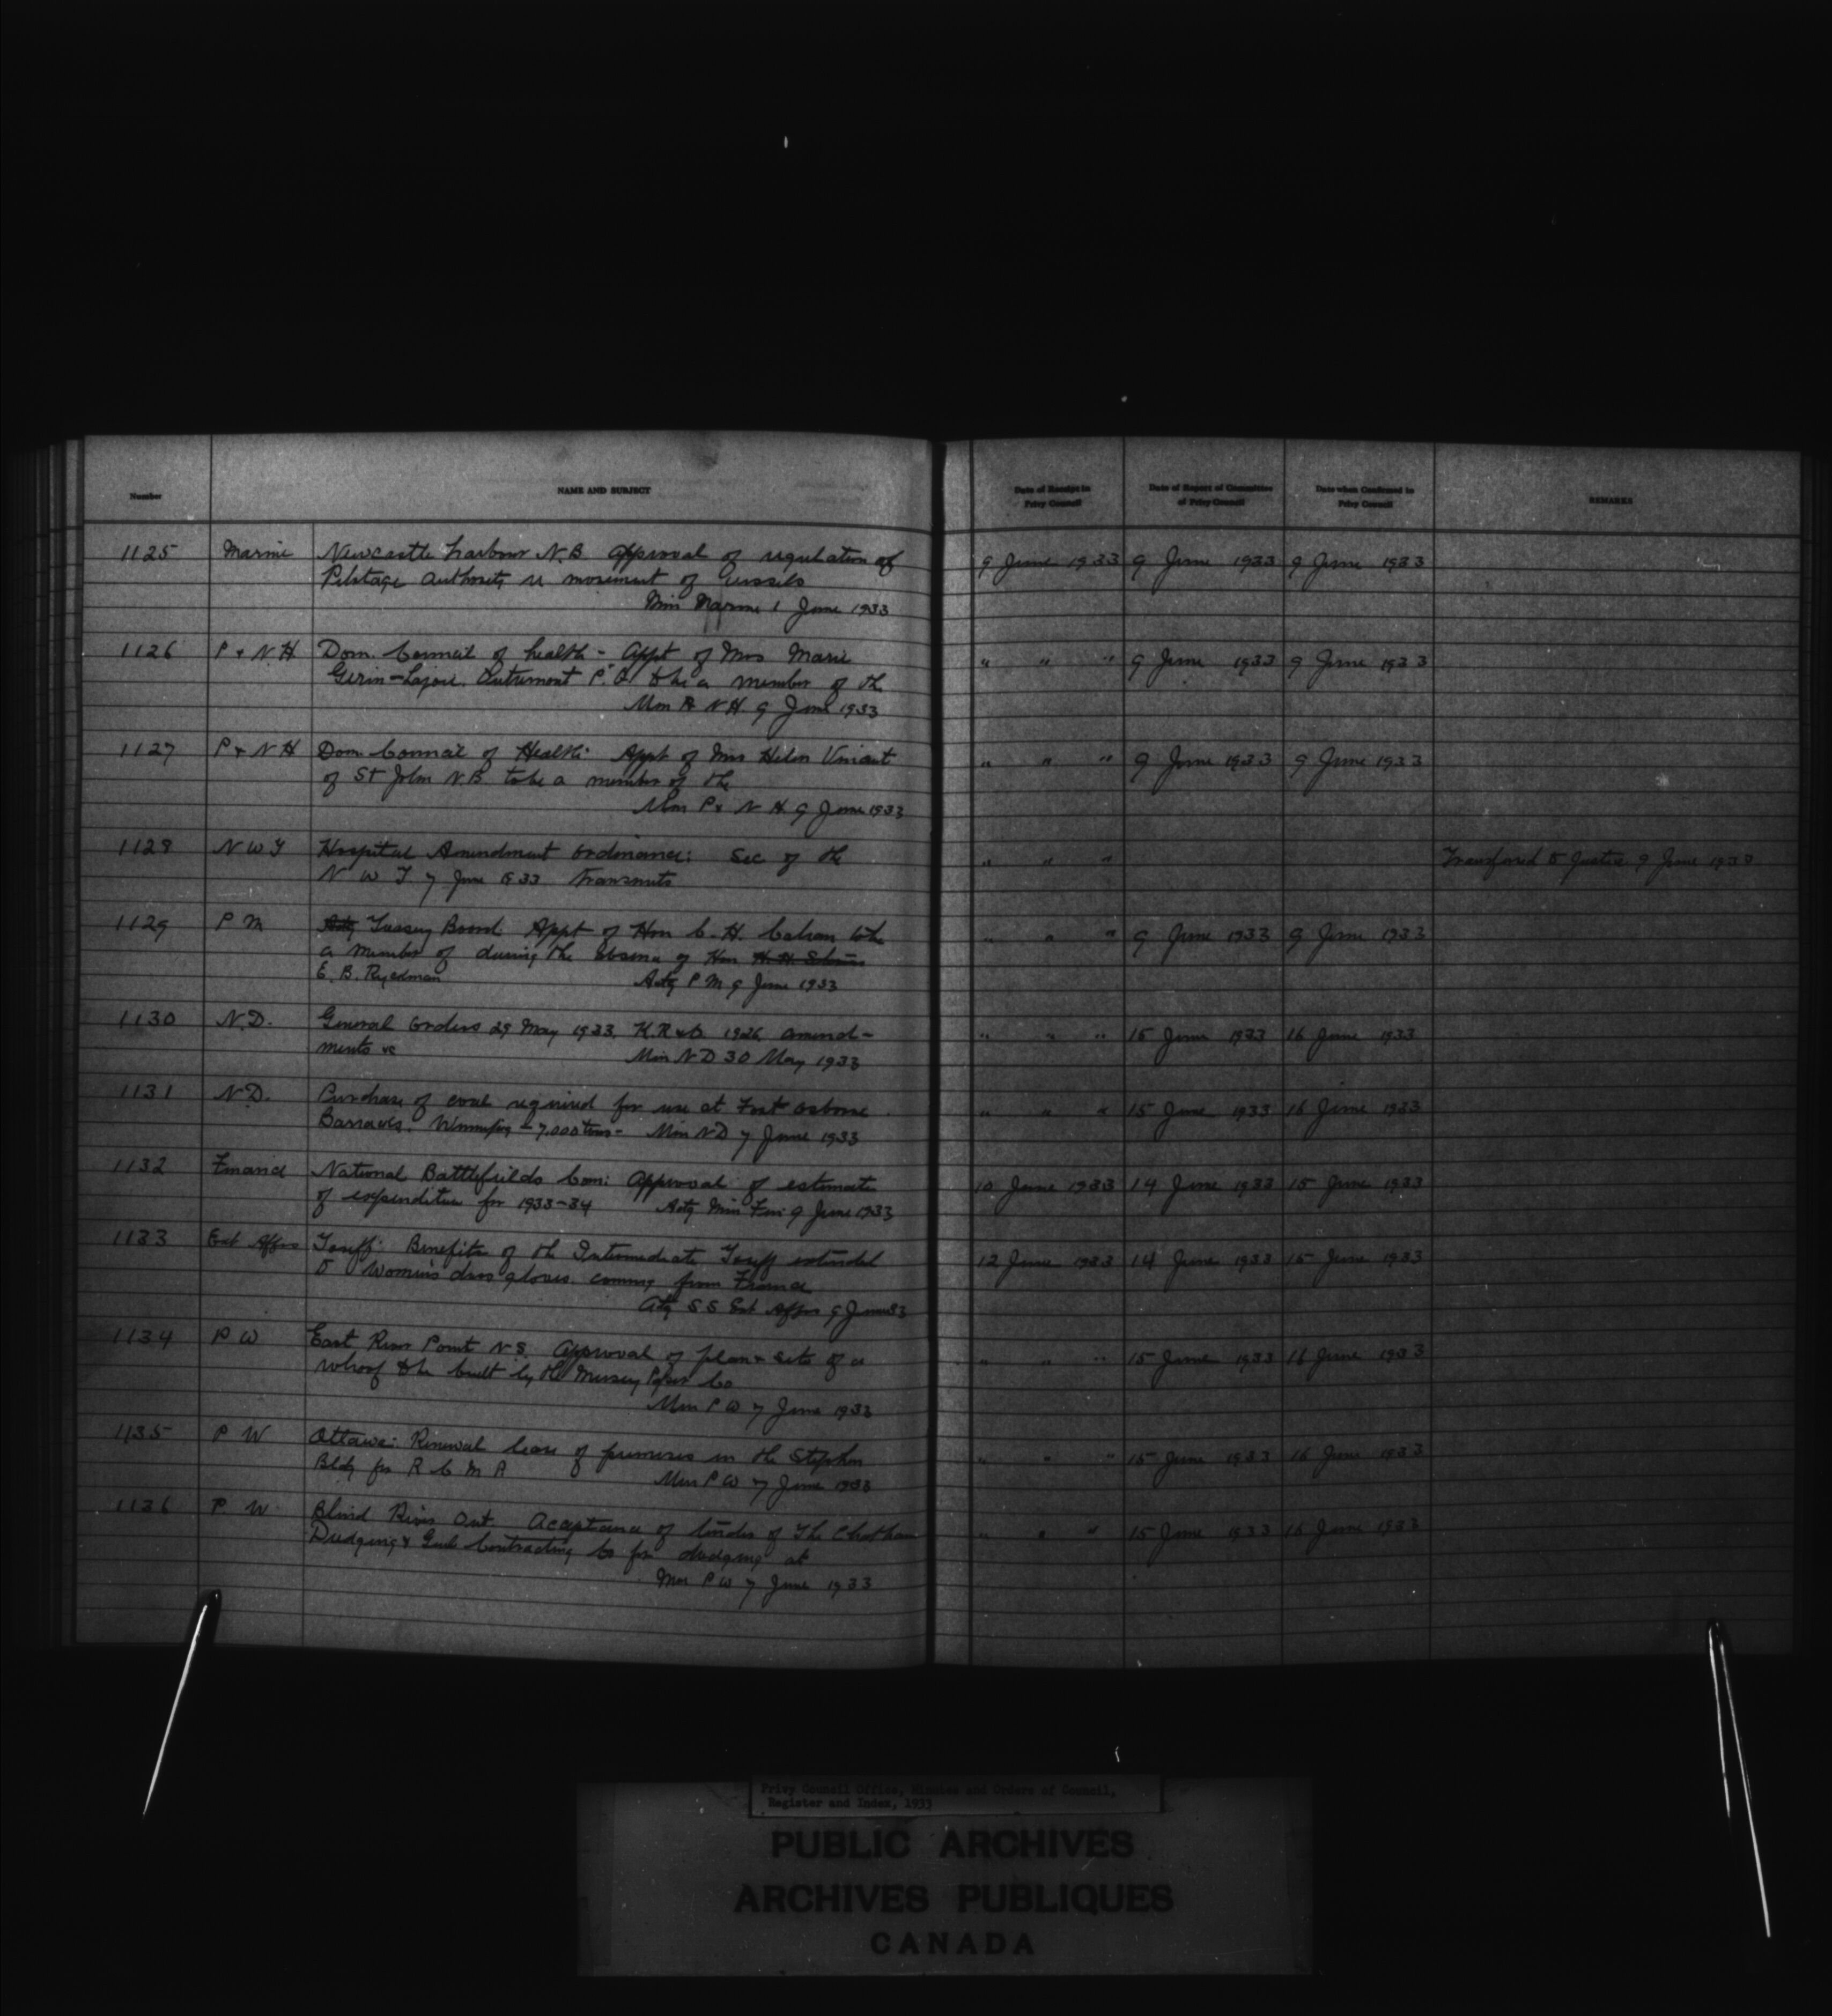 Number
NAME AND SUBJECT
Date of Receipt in Privy Council
Date of Report of Committee of Privy Council
Date when Confirmed in Privy Council
REMARKS
1125 Marine Newcastle harbour N.B. Approval of regulation of 9 June 1933 9 June 1933 9 June 1933
Pilotage Authority re movement of vessels
Min Marine 1 June 1933
1126 P & N.H. Dom. Council of health - Appt of Mrs Marie " " " 9 June 1933 9 June 1933
Gerin-Lajoie. Outremont P.Q. to be a member of the
Min P. N H 9 June 1933
1127 P & N H Dom. Council of Health: Appt of Mrs Helen " " " 9 June 1933 9 June 1933
of St John N.B. to be a member of the
Min P & N H 9 June 1933
1128 N W T Hospital Amendment Ordinance: Sec of the " " " Transferred to Justice 9 June 1933
N W T 7 June 1933 transmits
1129 P M Actg Treasury Board Appt of Hon C. H. Cahan to be " " " 9 June 1933 9 June 1933
a member of during the absence of Hon H. H. Stevens
E. B. Ryckman Actg P M 9 June 1933
1130 N.D. General Orders 29 May 1933. K.R & O 1926, amend- " " " 15 June 1933 16 June 1933
ments re Min N D 30 May 1933
1131 N.D. Purchase of coal required for use at Fort Osborne " " " 15 June 1933 16 June 1933
Barracks. Winnipeg - 7,000 tons - Min N D 7 June 1933
1132 Finance National Battlefields Com: Approval of estimate 10 June 1933 14 June 1933 15 June 1933
of expenditure for 1933-34 Actg Min Fin 9 June 1933
1133 Ext Affrs Tariff: Benefits of the Intermediate Tariff extended 12 June 1933 14 June 1933 15 June 1933
to Women's dress gloves coming from France
Actg S S Ext Affrs 9 June 33
1134 P W East River Point N S. Approval of plan & site of a " " " 15 June 1933 16 June 1933
wharf to be built by the Mersey Paper Co
Min P W 7 June 1933
1135 P W Ottawa: Renewal lease of premises in the Stephen " " " 15 June 1933 16 June 1933
Bldg for R C M P Min P W 7 June 1933
1136 P. W. Blind River Ont Acceptance of tender of The Chatham " " " 15 June 1933 16 June 1933
Dredging & Contracting Co for dredging at
Min P W 7 June 1933
Privy Council Office, Minutes and Orders of Council,
Register and Index, 1933
PUBLIC ARCHIVES
ARCHIVES PUBLIQUES
CANADA